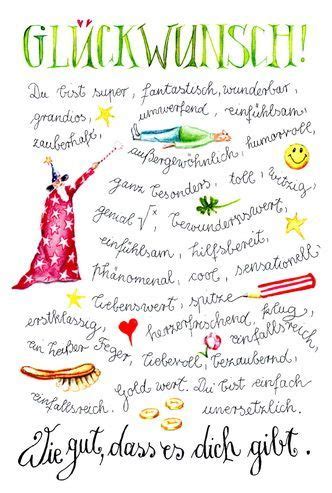 GLÜCKWUNSCH!
Du bist super, fantastisch, wunderbar,
grandios, umwerfend, einfühlsam,
zauberhaft, außergewöhnlich, humorvoll,
ganz besonders, toll, witzig,
genial √x, bewundernswert,
einfühlsam, hilfsbereit,
phänomenal, cool, sensationell
liebenswert, spitze
erstklassig, herzerfrischend, klug,
ein heißer Feger, liebevoll, bezaubernd, einfallsreich,
einfallsreich. Gold wert. Du bist einfach
unersetzlich.
Wie gut, dass es dich gibt.